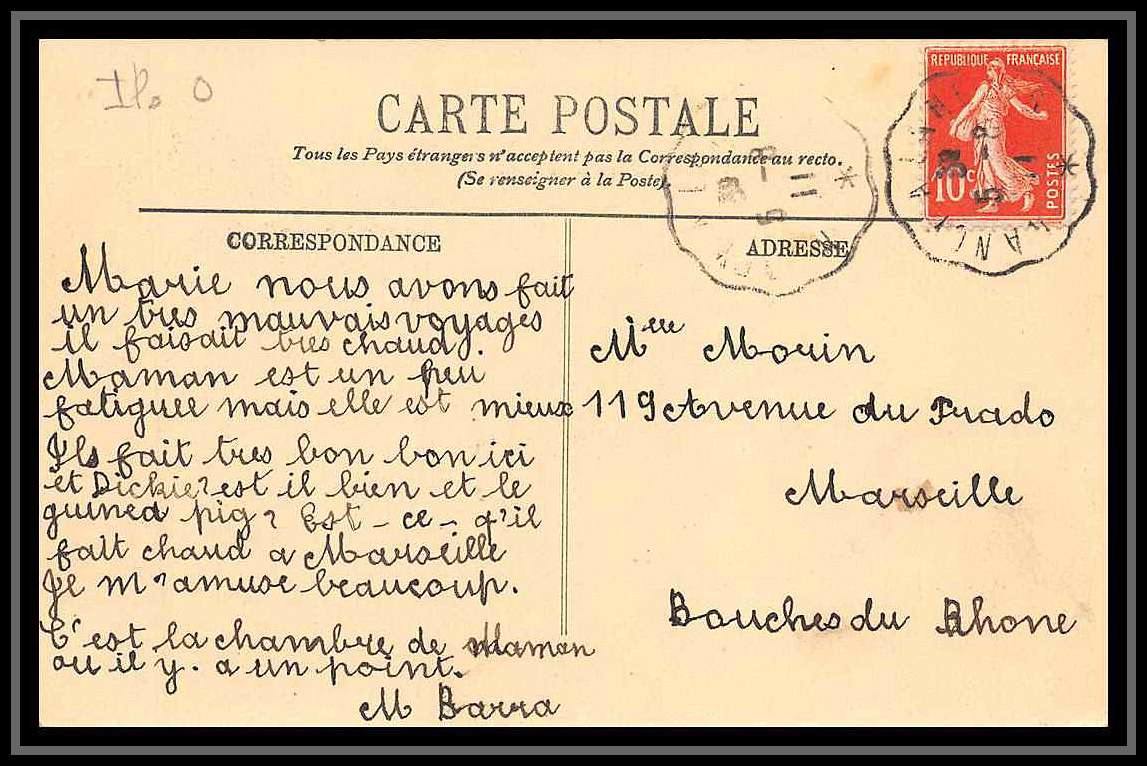 CARTE POSTALE
Tous les Pays étrangers n'acceptent pas la Correspondance au recto.
(Se renseigner à la Poste)
REPUBLIQUE FRANÇAISE
10c
POSTES
5 - 8
11
5 - 8
11
CORRESPONDANCE
Marie nous avons fait
un tres mauvais voyages
il faisait tres chaud.
Maman est un peu
fatiguee mais elle est mieux
Ils fait tres bon bon ici
et Dickie? est il bien et le
guinea pig? Est - ce - q'il
fait chaud a Marseille
Je m'amuse beaucoup.
C'est la chambre de Maman
ou il y. a un point.
M Barra
ADRESSE
Melle Morin
119 Avenue du Prado
Marseille
Bouches du Rhone